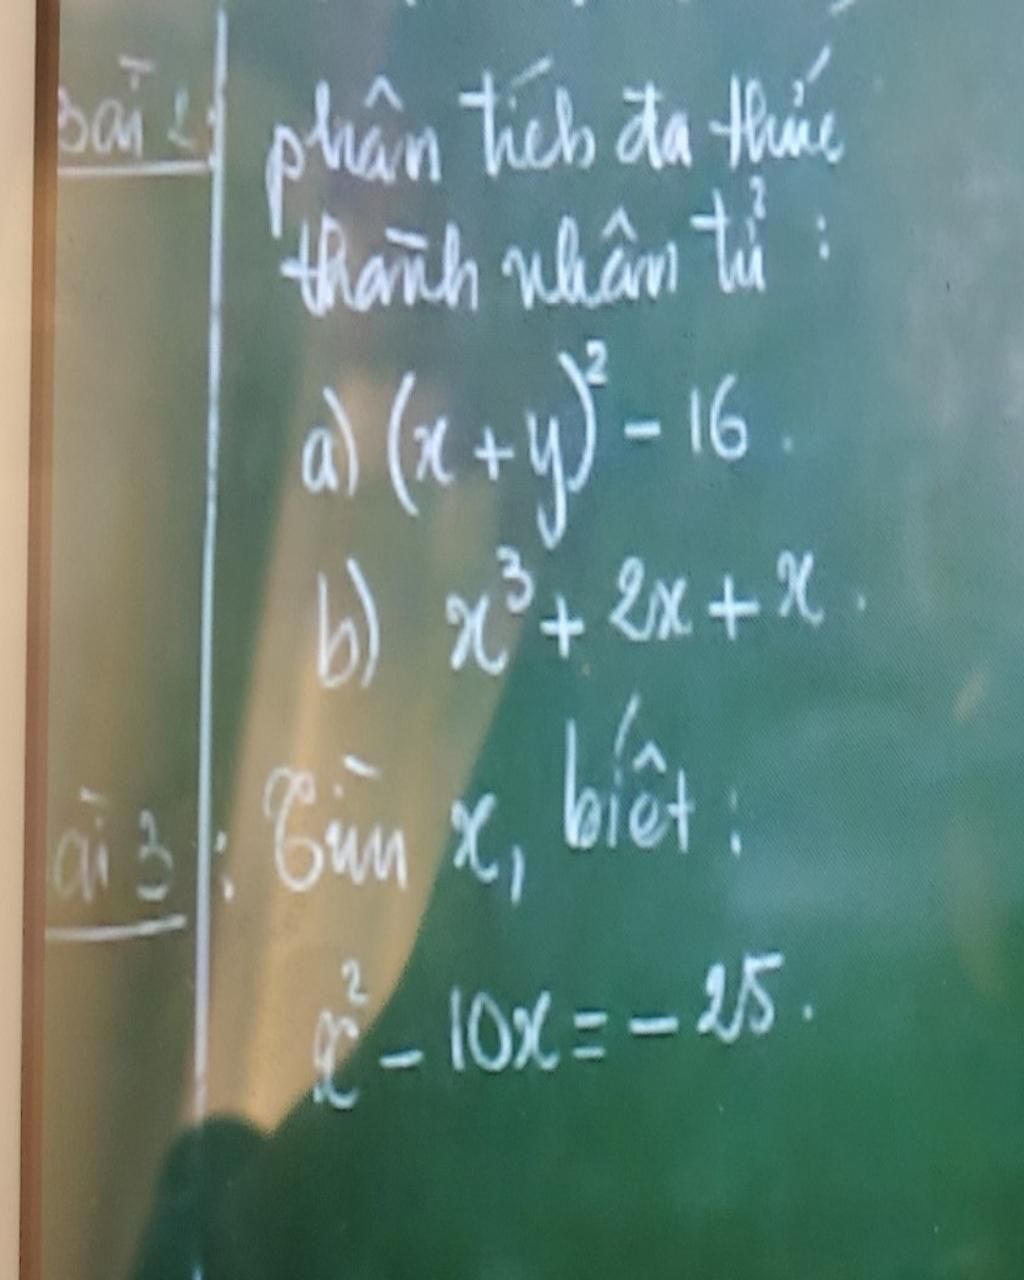 bài 2: phân tích đa thức
thành nhân tử :
a) (x + y)² - 16 .
b) x³ + 2x + x .
ài 3 : Tìm x, biết :
x² - 10x = - 25 .